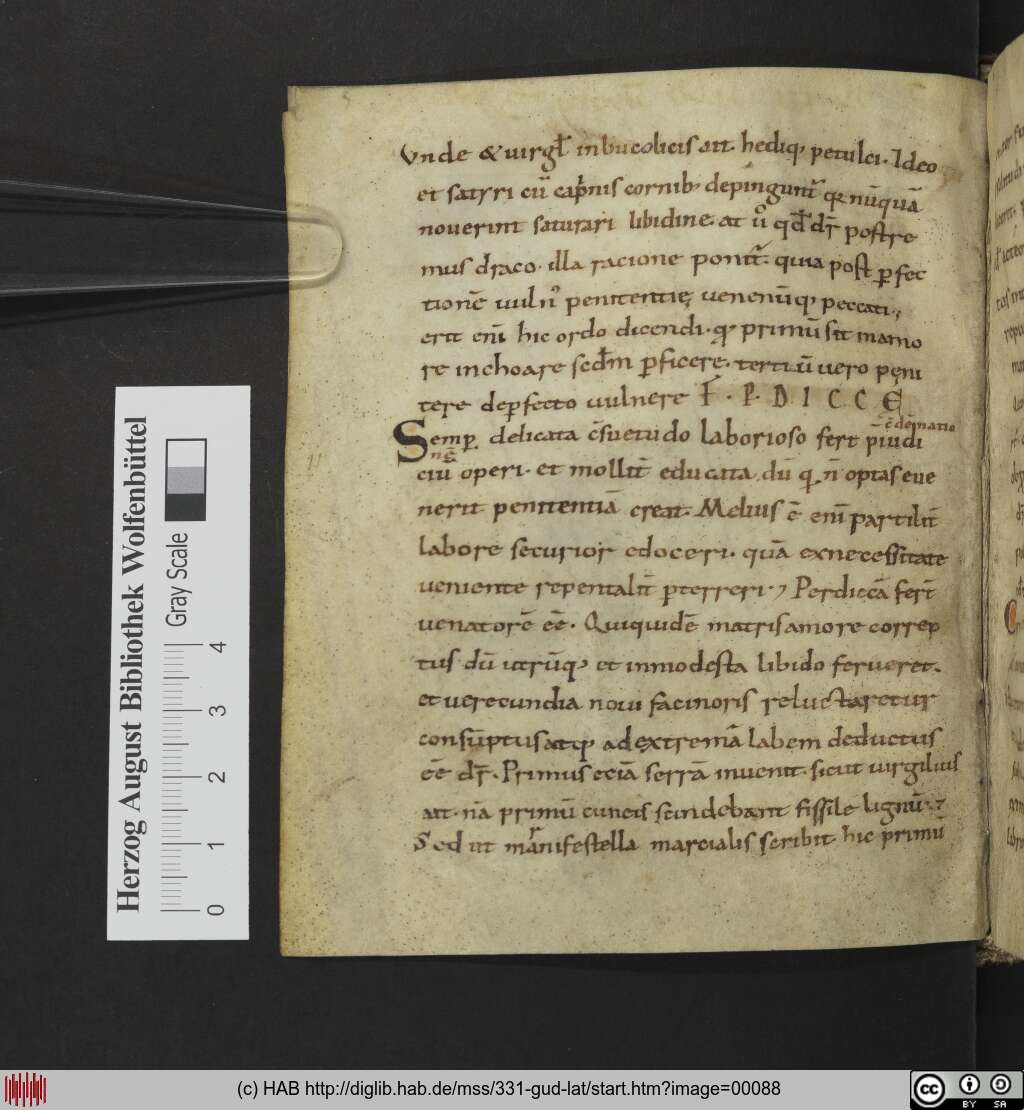 Vnde & uirgł in bucolicis ait. hediq; petulci. Ideo
et satyri cū cap̄nis cornib; depingunt̄ qꝛ nūquā
nouerint saturari libidine. at u̾ qđ dr̄ postre
mus draco. illa racione ponit̄. quia post ꝑfec
tionē uuln̾ penitentię uenenūq; peccati;
erit eni hic ordo dicendi. qꝛ primū sit mamo
re inchoare scđm ꝑficere. tertiū uero pęni
tere de ꝑfecto uulnere F̄. P. D I C C E
ē denatio
Semꝑ delicata c̄suetudo laborioso fert p̄iudi
ng
ciū operi. et mollit̄ educata. dū q̨ n̄ optas eue
nerit penitentiā creat. Melius ē eni partilit̄
labore securior edoceri. quā ex necessitate
ueniente repentalit̄ ꝑterreri; Perdiccā fert̄
uenatorē eē. Qui quidē matris amore correp
tus dū utrūq; et inmodesta libido ferueret.
et uerecundia noui facinoris reluctaretur
consūptus atq; ad extremā labem deductus
eē dr̄. Primus eciā serrā inuenit. sicut uirgilius
ait. nā primū cuneis scindebant fissile lignū;
Sed ut manifestella marcialis scribit hic primū
Herzog August Bibliothek Wolfenbüttel
Gray Scale
0 1 2 3 4
(c) HAB http://diglib.hab.de/mss/331-gud-lat/start.htm?image=00088
cc BY SA